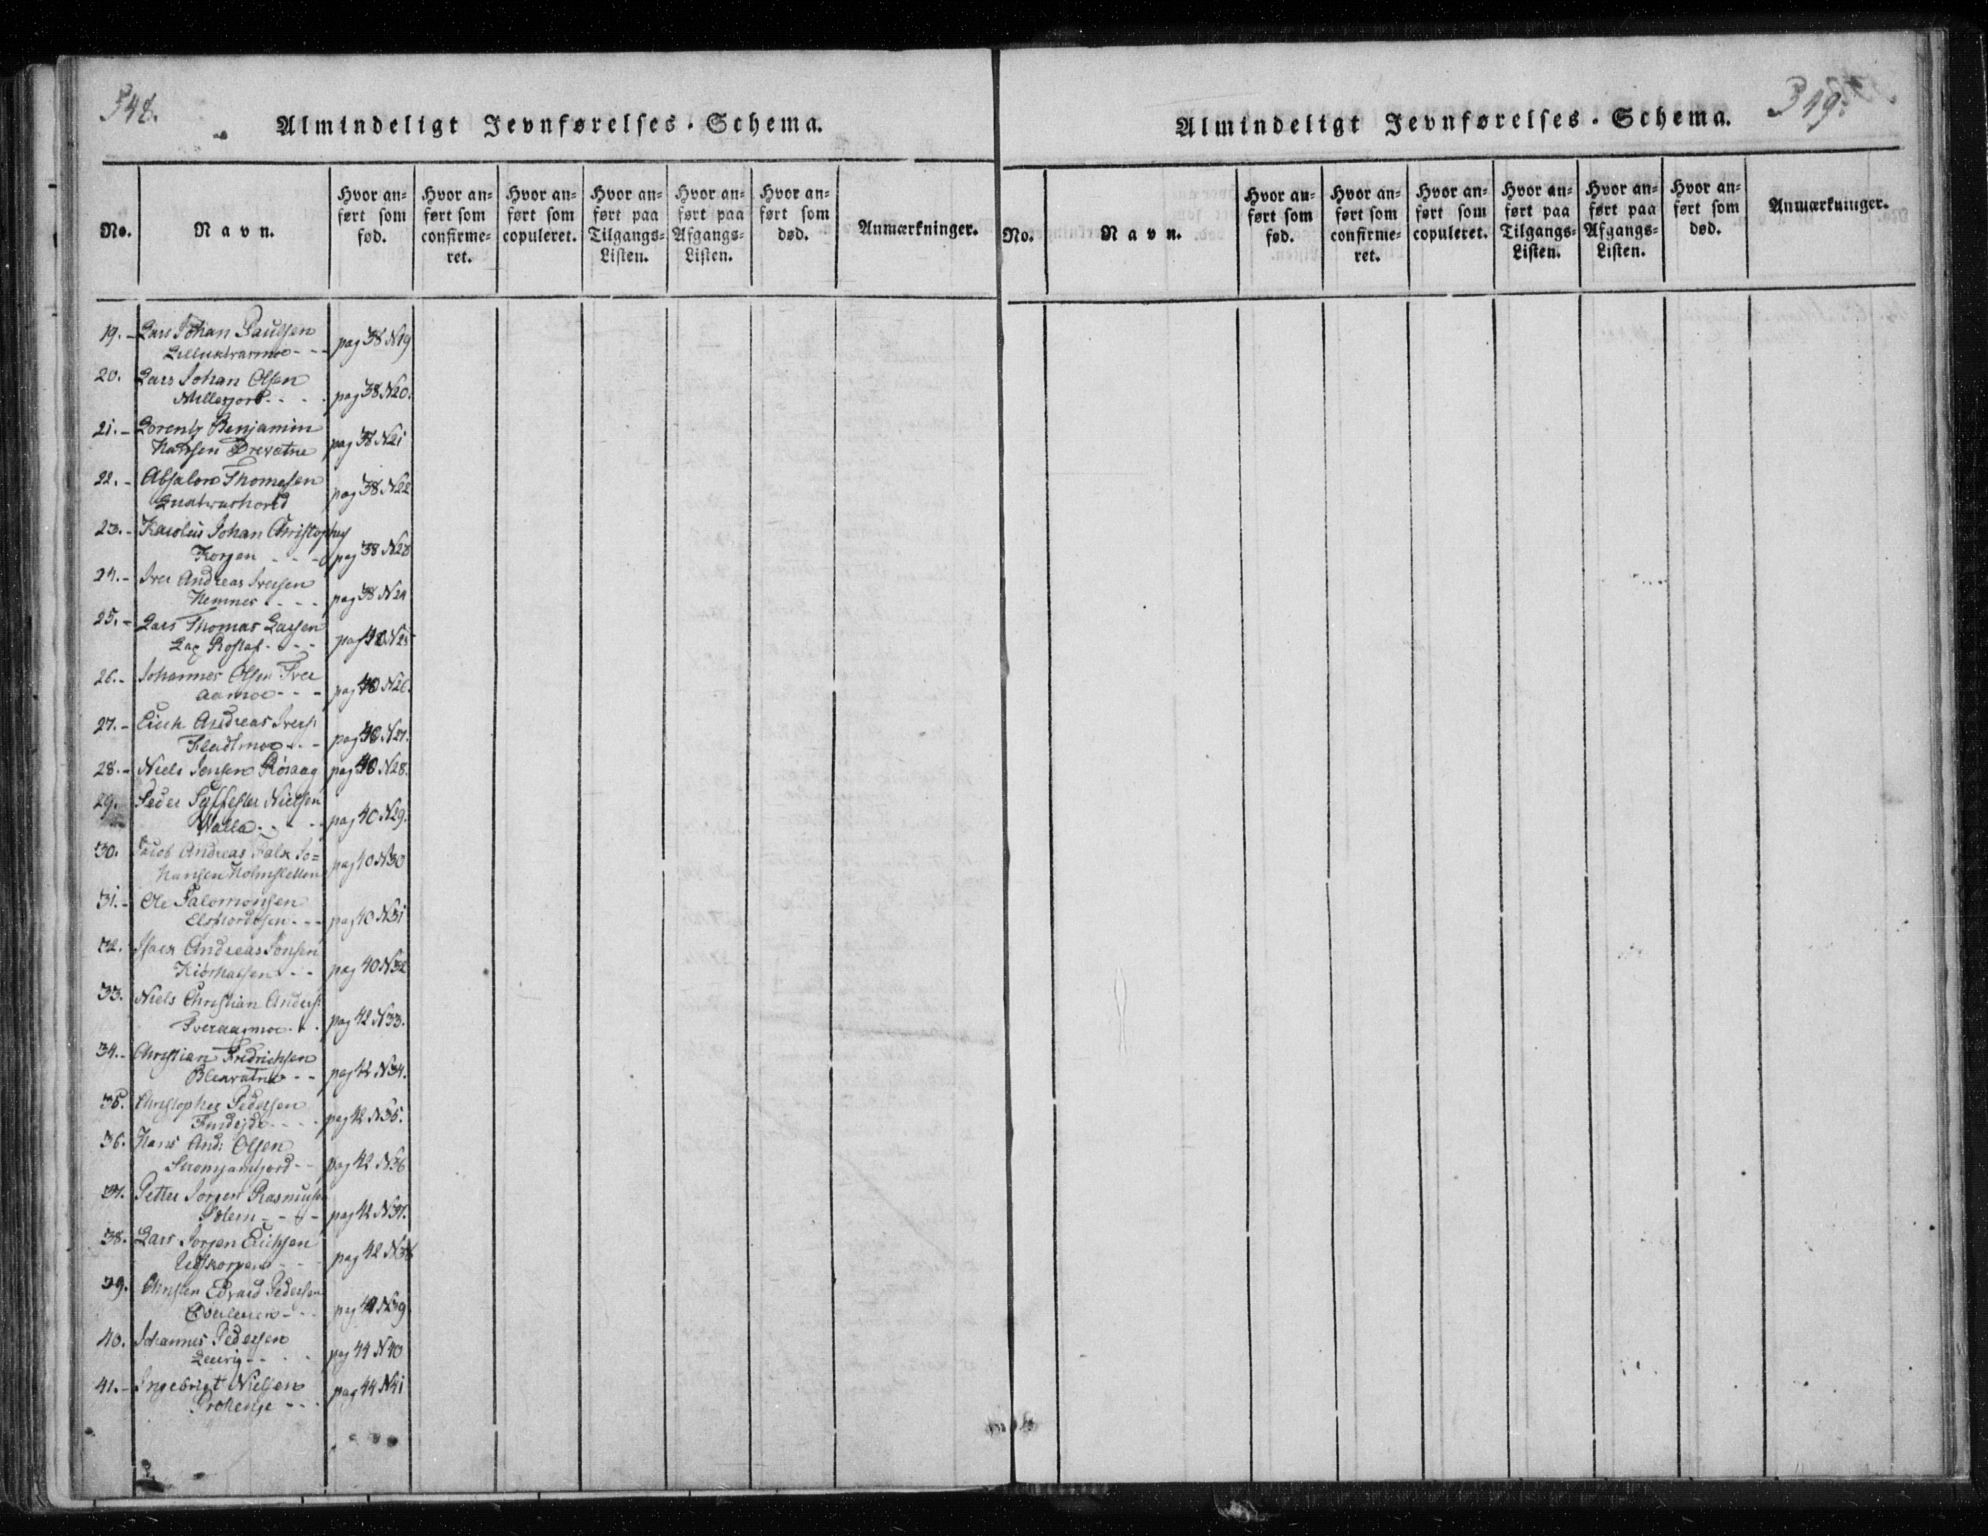 348.
Almindeligt Jevnførelses-Schema.
No.
Navn.
Hvor an-
ført som
fød.
Hvor an-
ført som
confirme-
ret.
Hvor an-
ført som
copuleret.
Hvor an-
ført paa
Tilgangs-
Listen.
Hvor an-
ført paa
Afgangs-
Listen.
Hvor an-
ført som
død.
Anmærkninger.
19. Lars Johan Paulsen
pag 38 N19
20. Lars Johan Olsen
pag 38 N20.
21. Lorentz Benjamin
Hansen Drevatne pag 38 N21
22. Absalon Thomesen
pag 38 N22
23. Karolus Johan Christophes
Korgen pag 38 N23
24. Iver Andreas Iversen
Hemnes pag 38 N24
25. Lars Thomas Larsen
pag 40 N25
26. Johannes Olsen Tver
aamoe pag 40 N26.
27. Erich Andreas Ivers:
pag 40 N27.
28. Niels Jensen Røsaag pag 40 N28.
29. Peder Sylfester Nielsen
Valla pag 40 N29.
30. Jacob Andreas Falk Jo=
hansen Holmsletten pag 40 N30
31. Ole Salomonsen
pag 40 N31
32. Isack Andreas Jonsen
pag 40 N32
33. Niels Christian Anders:
Tveraamoe pag 42 N33.
34. Christian Fredrichsen
Blexvatne pag 42 N34.
35. Christopher Pedersen
pag 42 N35.
36. Hans And: Olsen
pag 42 N36
37. Petter Jørgen Rasmusen
Solem pag 42 N37.
38. Lars Jørgen Erichsen
pag 42 N38
39. Christen Edvard Pedersen
pag 42 N39
40. Johannes Pedersen
pag 44 N40
41. Ingebrigt Nielsen
pag 44 N41
349.
Almindeligt Jevnførelses-Schema.
No.
Navn.
Hvor an-
ført som
fød.
Hvor an-
ført som
confirme-
ret.
Hvor an-
ført som
copuleret.
Hvor an-
ført paa
Tilgangs-
Listen.
Hvor an-
ført paa
Afgangs-
Listen.
Hvor an-
ført som
død.
Anmærkninger.